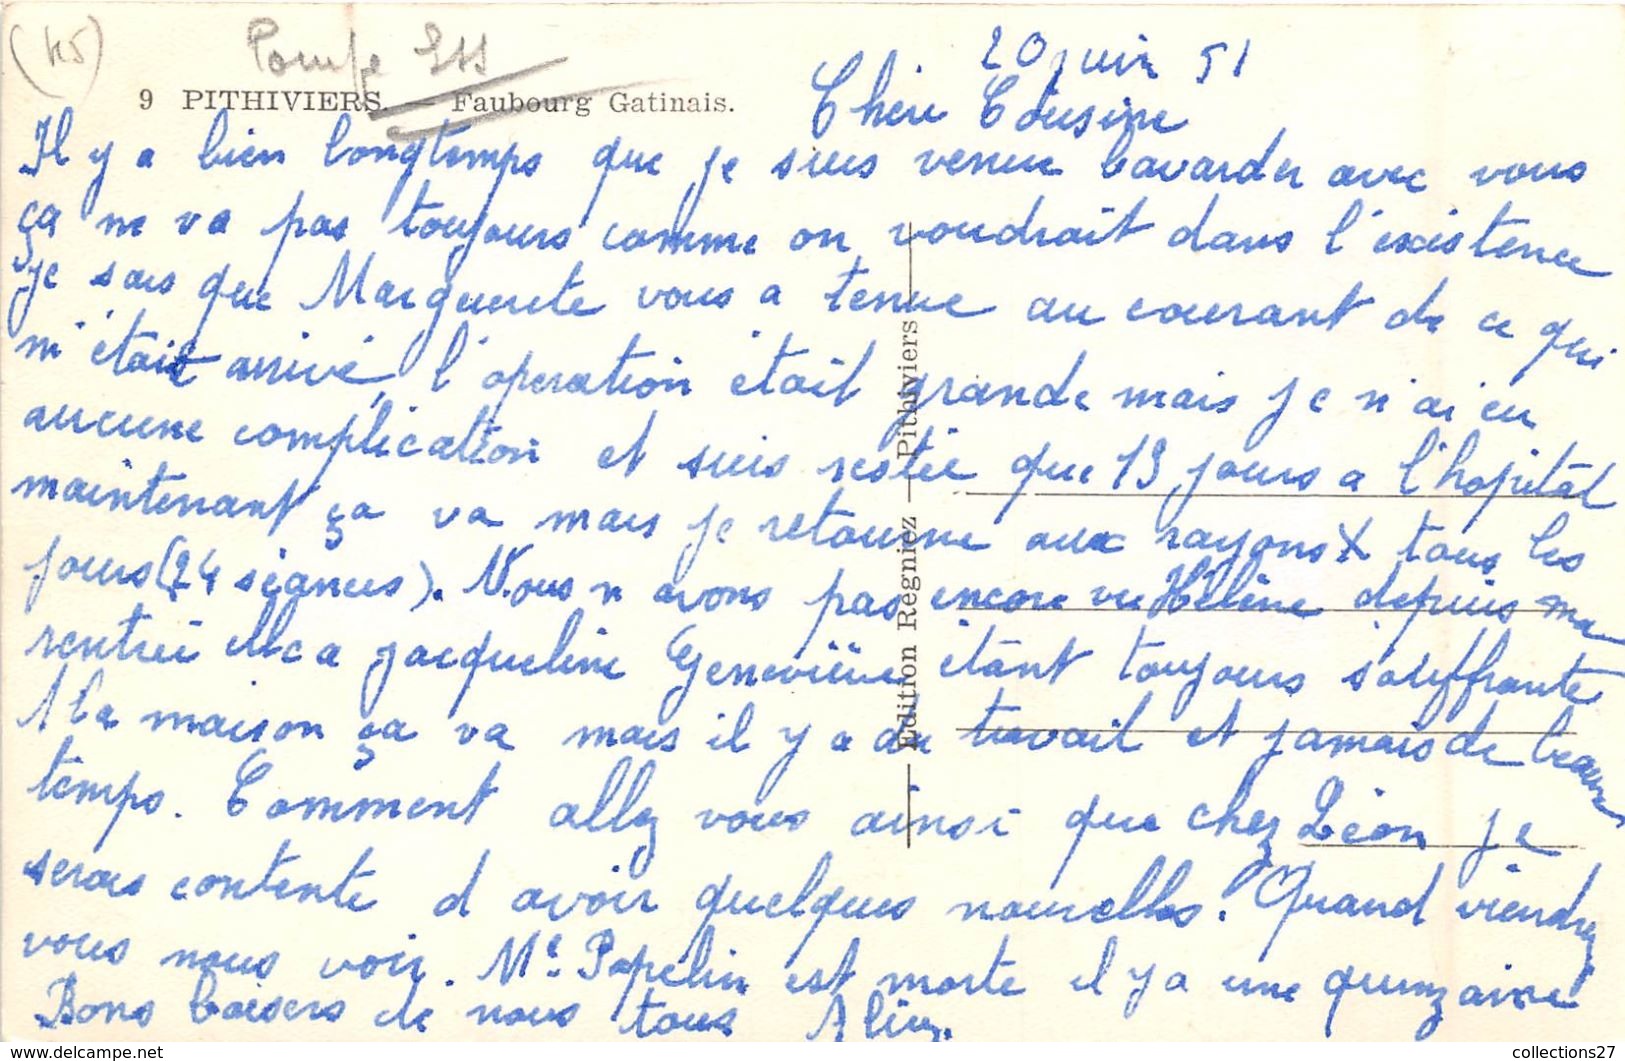 (k5)
Pompe Ess
20 juin 51
9 PITHIVIERS. — Faubourg Gatinais.
Chère Cousine
Il y a bien longtemps que je suis venue bavarder avec vous
ça ne va pas toujours comme on voudrait dans l'existence
je sais que Marguerite vous a tenue au courant de ce qui
m'était arrivé, l'opération était grande mais je n'ai eu
aucune complication et suis restée que 13 jours a l'hopital
maintenant ça va mais je retourne aux rayons X tous les
jours (24 séances). Nous n avons pas encore vu Hélène depuis ma
rentrée elle a jacqueline Geneviève étant toujours souffrante
A la maison ça va mais il y a du travail et jamais de beau
temps. Comment allez vous ainsi que chez Léon je
serais contente d avoir quelques nouvelles. Quand viendrez
vous nous voir. Me Papelin est morte il y a une quinzaine
Bons baisers de nous tous
Edition Regniez — Pithiviers
collections27